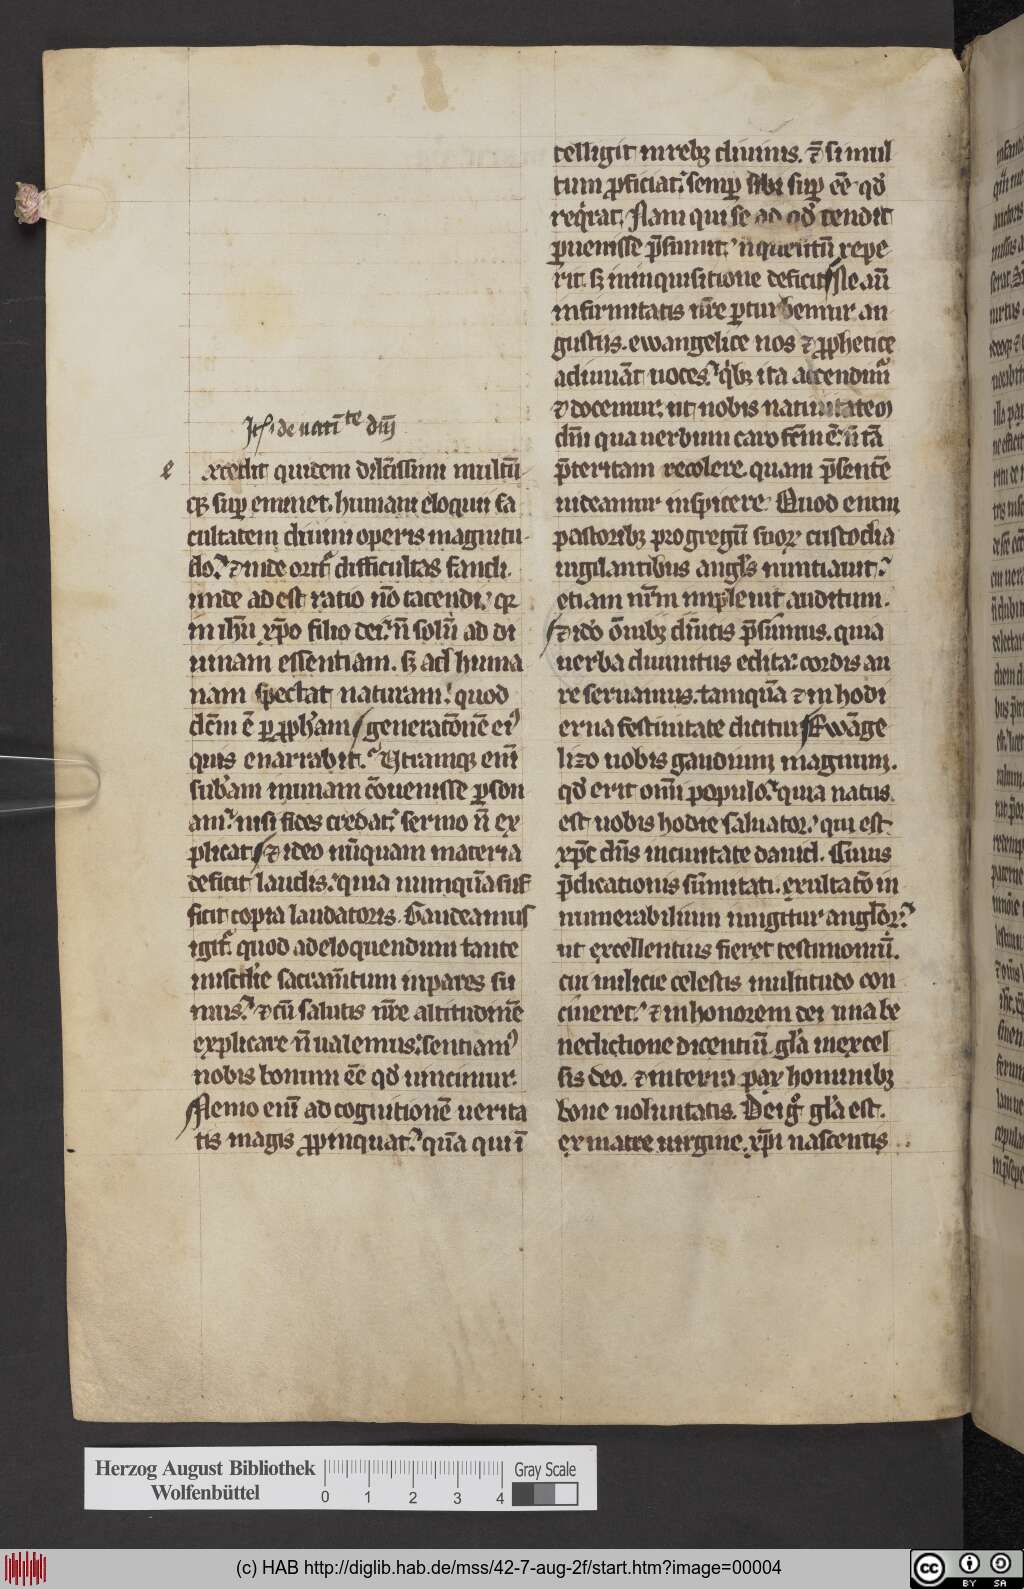 Itē de nati^te dn̄j
e xcedit quidem dilc̄tissimi multū
qꝫ suꝑ eminet. humani eloquii fa
cultatem diuini operis magnitu
do. ⁊ inde oritᷣ difficultas fandi.
unde adest ratio nō tacendi. qꝛ
in ihū xp̄o filio dei. n̄ solū ad di
uinam essentiam. sꝫ ad huma
nam spectat naturam. quod
dc̄m ē ꝑ ꝓph'am generatōnē eiꝰ
quis enarrabit. Utramqꝫ enī
sub'am in unam cōuenisse ꝑson
am. nisi fides credat. sermo n̄ ex
plicat ⁊ ideo nūquam materia
deficit laudis. quia nunquā suf
ficit copia laudatoris. Gaudeamus
igitᷣ quod ad eloquendum tante
misc'die sacram̄tum inpares su
mus. ⁊ cū salutis nr̄e altitudinē
explicare n̄ ualemus. sentiamꝰ
nobis bonum eē qd̄ uincimur.
Nemo enī ad cognitionē uerita
tis magis ꝓpinquat. quā qui ī
telligit in rebꝫ diuinis. ⁊ si mul
tum ꝓficiat. semꝑ sibi suꝑ eē qd̄
req'rat. Nam qui se ad qd̄ tendit
ꝑuenisse p̄sumit. n̄ quesitū repe
rit. sꝫ in inquisitione deficit Ne aū
infirmitatis nr̄e ꝑturbemur an
gustiis. ewangelice nos ⁊ ꝓphetice
adiuuāt uoces. q'bꝫ ita accendimᷣ
⁊ docemur. ut nobis natiuitatem
dn̄i qua uerbum caro fc̄m ē n̄ tā
p̄teritam recolere. quam p̄sentē
uideamur inspicere. Quod enim
pastoribꝫ pro gregū suoꝝ custodia
uigilantibus angl's nuntiauit.
etiam nr̄m impleuit auditum.
⁊ ido' om̄ibꝫ dn̄icis p̄sumus. quia
uerba diuinitus edita. cordis au
re seruamus. tamquā ⁊ in hodi
erna festiuitate dicitur Ewāge
lizo uobis gaudium magnum.
qd̄ erit omī populo. quia natus
est uobis hodie saluator. qui est
xp̄c dn̄s in ciuitate dauid. Cuius
p̄dicationis sūmitati. exultatō in
numerabilium iungitur angl'oꝝ.
ut excellentius fieret testimoniū.
cui milicie celestis multitudo con
cineret. ⁊ in honorem dei una be
nedictione dicentiū gl'a in excel
sis deo. ⁊ in terra pax hominibꝫ
bone uoluntatis. Dei gͦ gl'a est.
ex matre uirgine. xp̄i nascentis
Herzog August Bibliothek
Wolfenbüttel
0 1 2 3 4
Gray Scale
(c) HAB http://diglib.hab.de/mss/42-7-aug-2f/start.htm?image=00004
cc BY SA